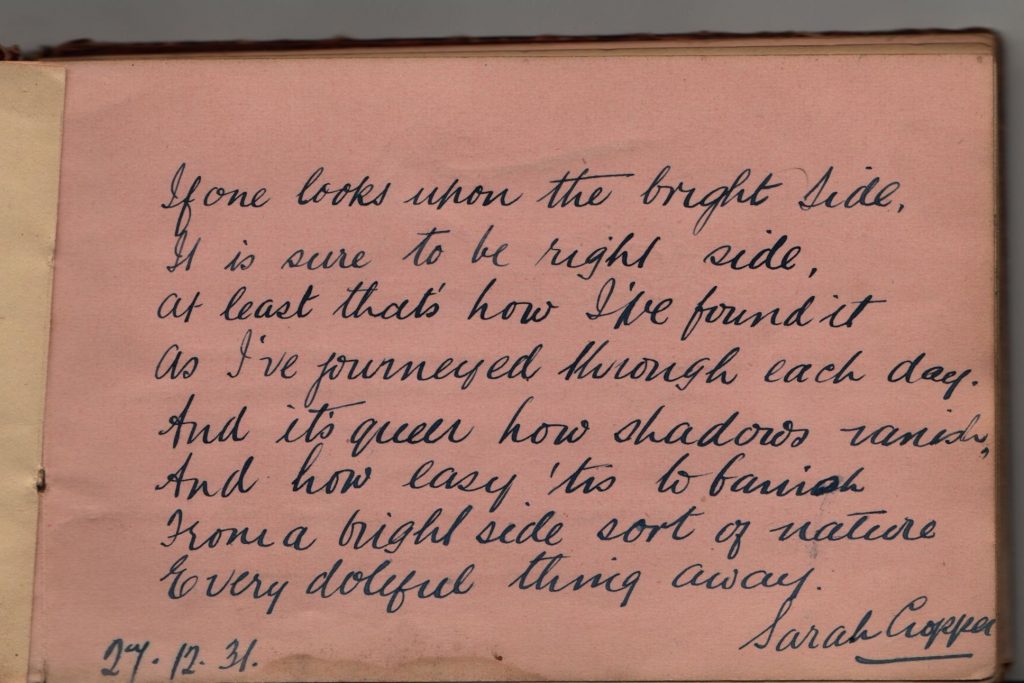 If one looks upon the bright side,
It is sure to be right side,
at least that's how I've found it
As I've journeyed through each day.
And it's queer how shadows vanish,
And how easy 'tis to banish
From a bright side sort of nature
Every doleful thing away.
Sarah Cropper
27.12.31.